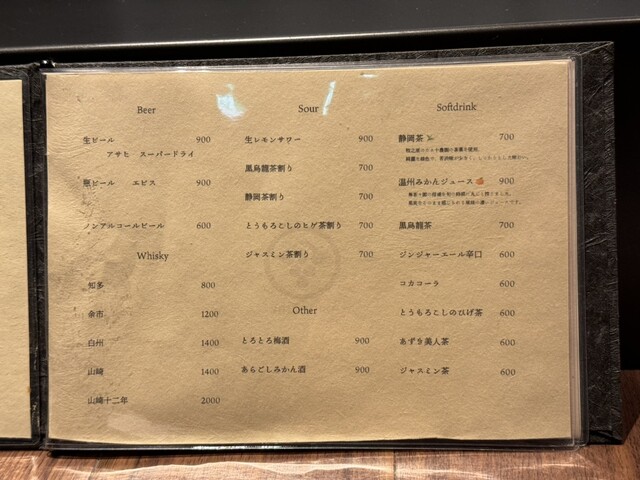 Beer
生ビール 900
アサヒ スーパードライ
瓶ビール エビス 900
ノンアルコールビール 600
Whisky
知多 800
余市 1200
白州 1400
山崎 1400
山崎十二年 2000
Sour
生レモンサワー 900
黒烏龍茶割り 700
静岡茶割り 700
とうもろこしのヒゲ茶割り 700
ジャスミン茶割り 700
Other
とろとろ梅酒 900
あらごしみかん酒 900
Softdrink
静岡茶 700
温州みかんジュース 900
黒烏龍茶 700
ジンジャーエール辛口 600
コカコーラ 600
とうもろこしのひげ茶 600
あずき美人茶 600
ジャスミン茶 600